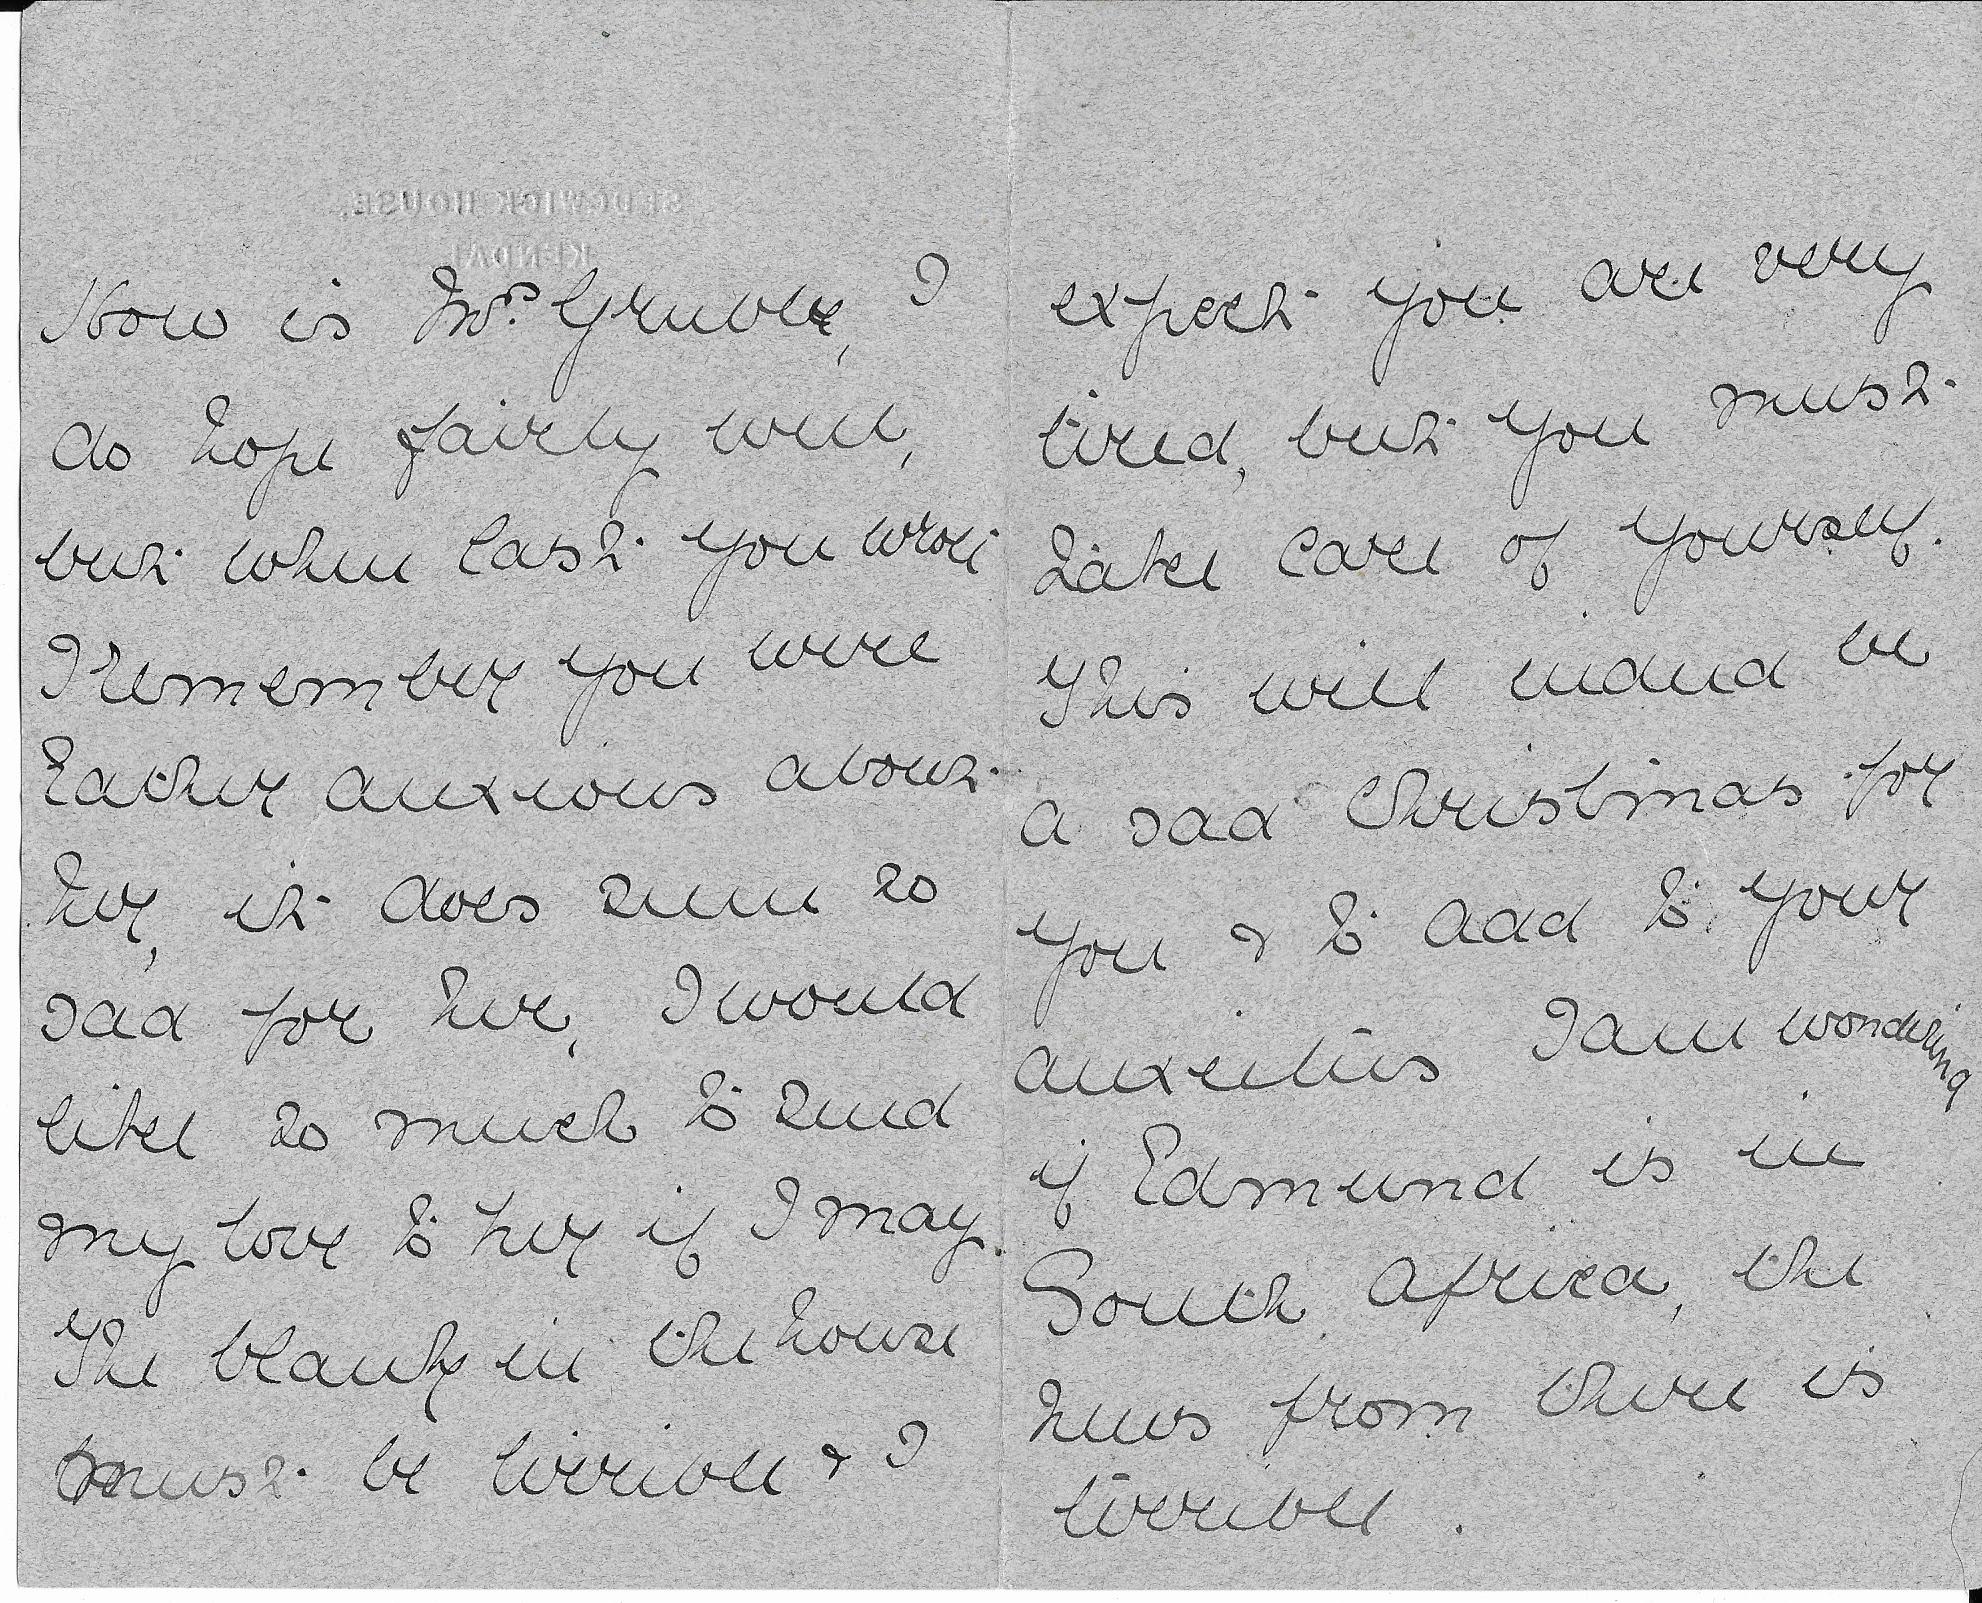 SEDGWICK HOUSE,
KENDAL
How is Mrs. Gruble, I
do hope fairly well,
but when last you wrote
I remember you were
rather anxious about
her, it does seem so
sad for her, I would
like so much to send
my love to her if I may.
The blank in the house
must be terrible & I
expect you are very
tired, but you must
take care of yourself.
This will indeed be
a sad Christmas for
you & to add to your
anxieties I am wondering
if Edmund is in
South Africa, the
news from there is
terrible.